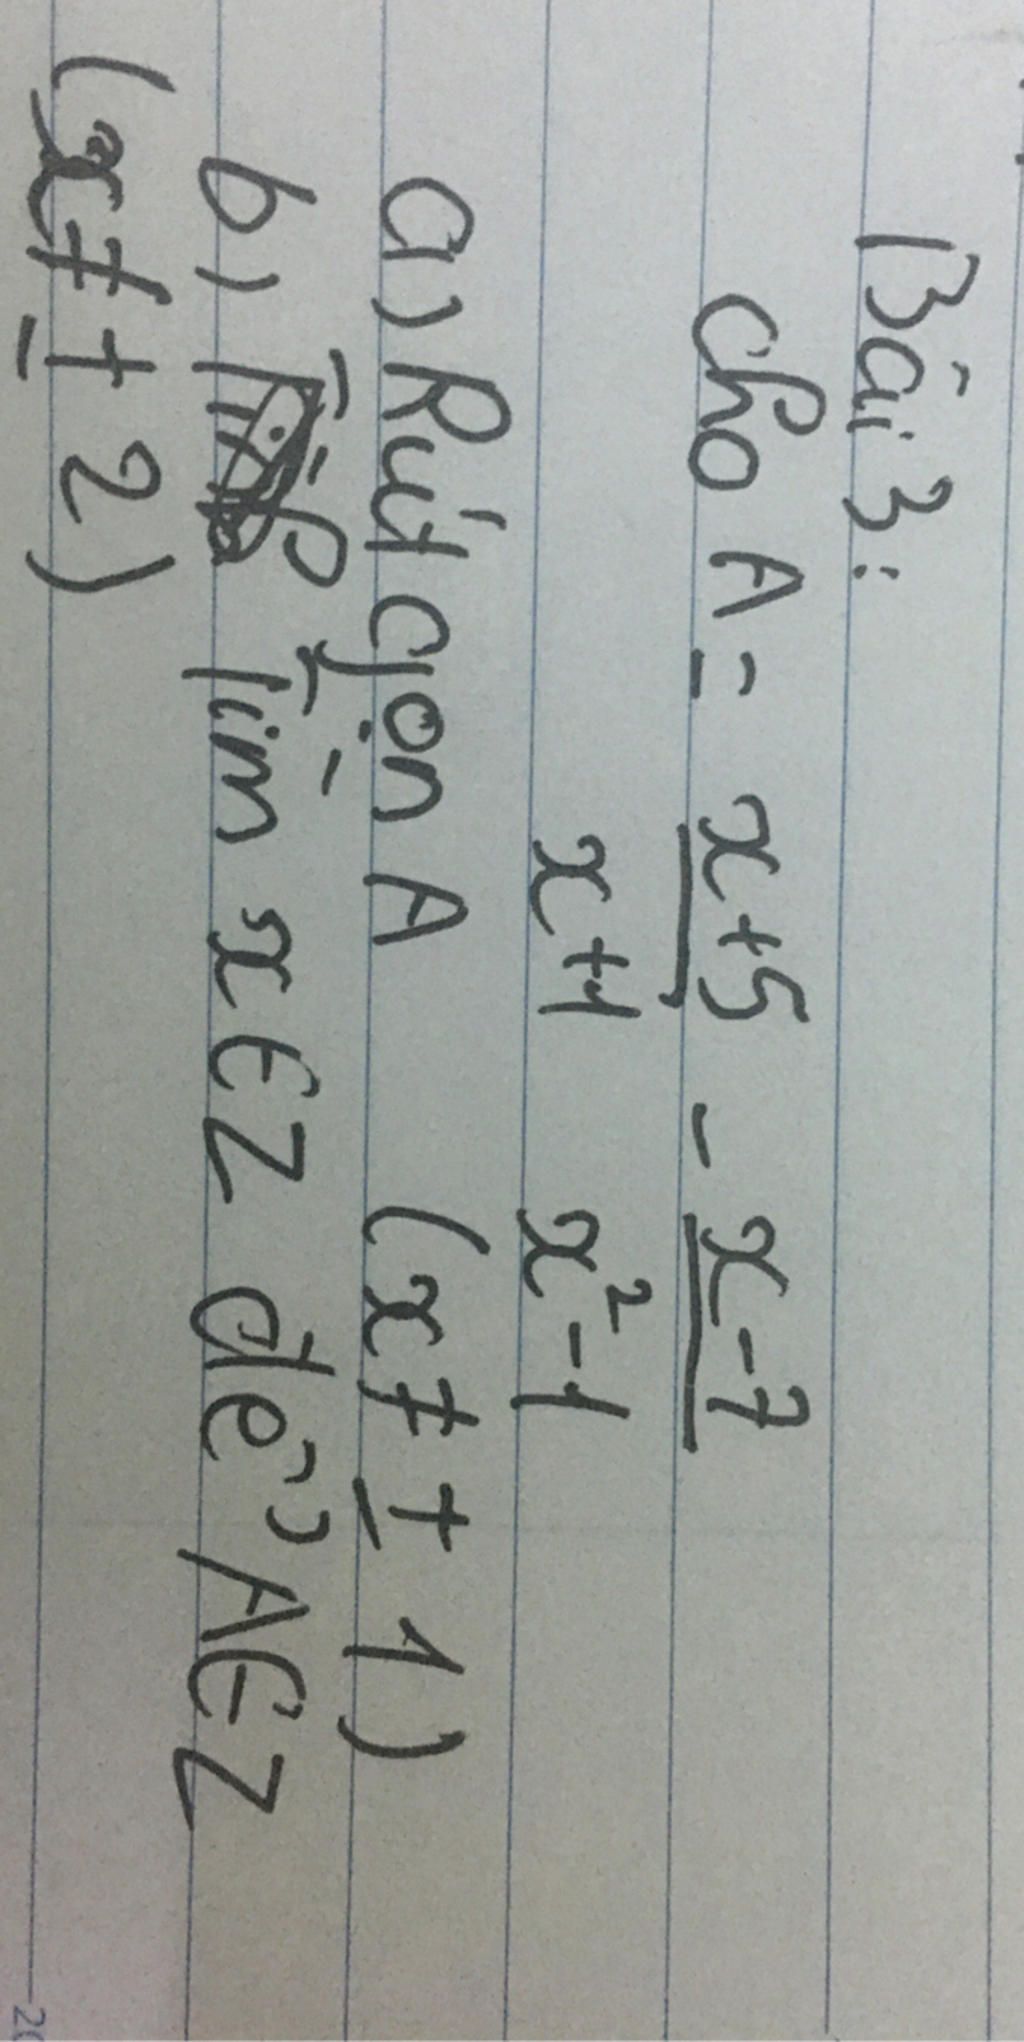 Bài 3:
Cho A = x+5 / x+1 - x-7 / x²-1
a) Rút gọn A (x ≠ ± 1)
b) Tìm x ∈ Z để A ∈ Z
(x ≠ ± 2)